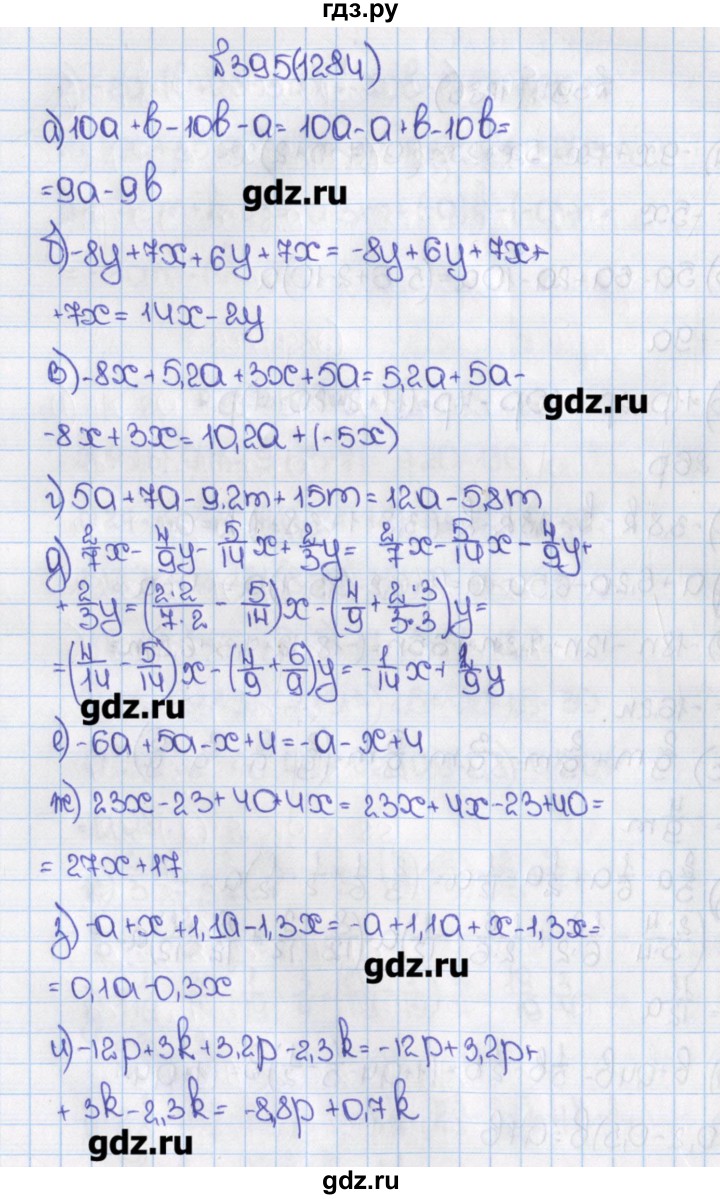 гдз.ру
№395(1284)
а) 10a + b - 10b - a = 10a - a + b - 10b =
= 9a - 9b
gdz.ru
б) -8y + 7x + 6y + 7x = -8y + 6y + 7x +
+ 7x = 14x - 2y
в) -8x + 5,2a + 3x + 5a = 5,2a + 5a -
gdz.ru
-8x + 3x = 10,2a + (-5x)
г) 5a + 7a - 9,2m + 15m = 12a - 5,8m
д) 2/7 x - 4/9 y - 5/14 x + 2/3 y = 2/7 x - 5/14 x - 4/9 y +
+ 2/3 y = (2·2/7·2 - 5/14)x - (4/9 + 2·3/3·3)y =
= (4/14 - 5/14)x - (4/9 + 6/9)y = -1/14 x + 2/9 y
gdz.ru
е) -6a + 5a - x + 4 = -a - x + 4
ж) 23x - 23 + 40 + 4x = 23x + 4x - 23 + 40 =
= 27x + 17
з) -a + x + 1,1a - 1,3x = -a + 1,1a + x - 1,3x =
gdz.ru
= 0,1a - 0,3x
и) -12p + 3k + 3,2p - 2,3k = -12p + 3,2p +
+ 3k - 2,3k = -8,8p + 0,7k
gdz.ru
gdz.ru